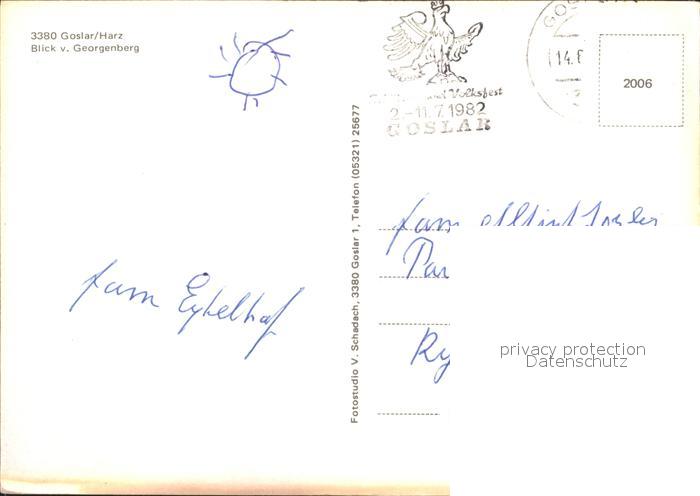 3380 Goslar/Harz
Blick v. Georgenberg
Volksfest
2.-11.7.1982
GOSLAR
GOS
14.6
2006
Fotostudio V. Schadach, 3380 Goslar 1, Telefon (05321) 25677
Fam
Par
Ry
Fam Eykelhof
privacy protection
Datenschutz